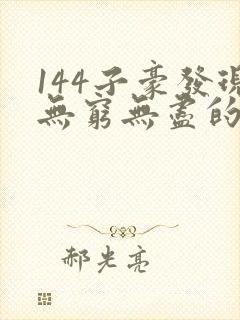 144子豪發現
無窮無盡的
郝光亮